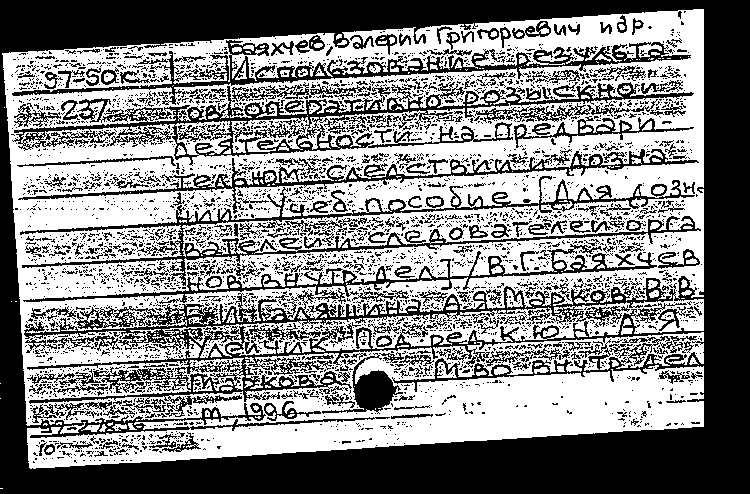 Баяхчев, Валерий Григорьевич и др.
97-50к Использование результа-
237 тов оперативно-розыскной
деятельности на предвари-
тельном следствии и дозна-
нии. Учеб. пособие. [Для дозн-
вателей и следователей орга
нов внутр. дел] / В.Г. Баяхчев
Е.И. Галяшина, А.Я. Марков, В.В.
Улейчик, Под ред. к.ю.н., А.Я.
Маркова, М-во внутр. дел
М., 1996
10